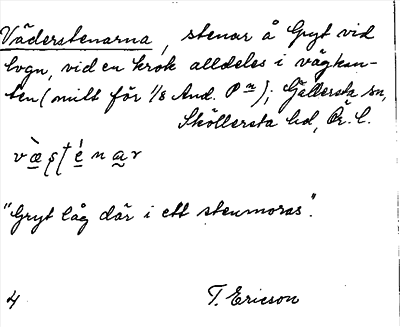 Väderstenarna, stenar å Gryt vid
lvgn, vid en krok alldeles i vägkan-
ten (mitt för 1/8 And. P n); Gällersta sn,
Sköllersta hd, Ör. l.
"Gryt låg där i ett stenmoras".
4 T. Ericson